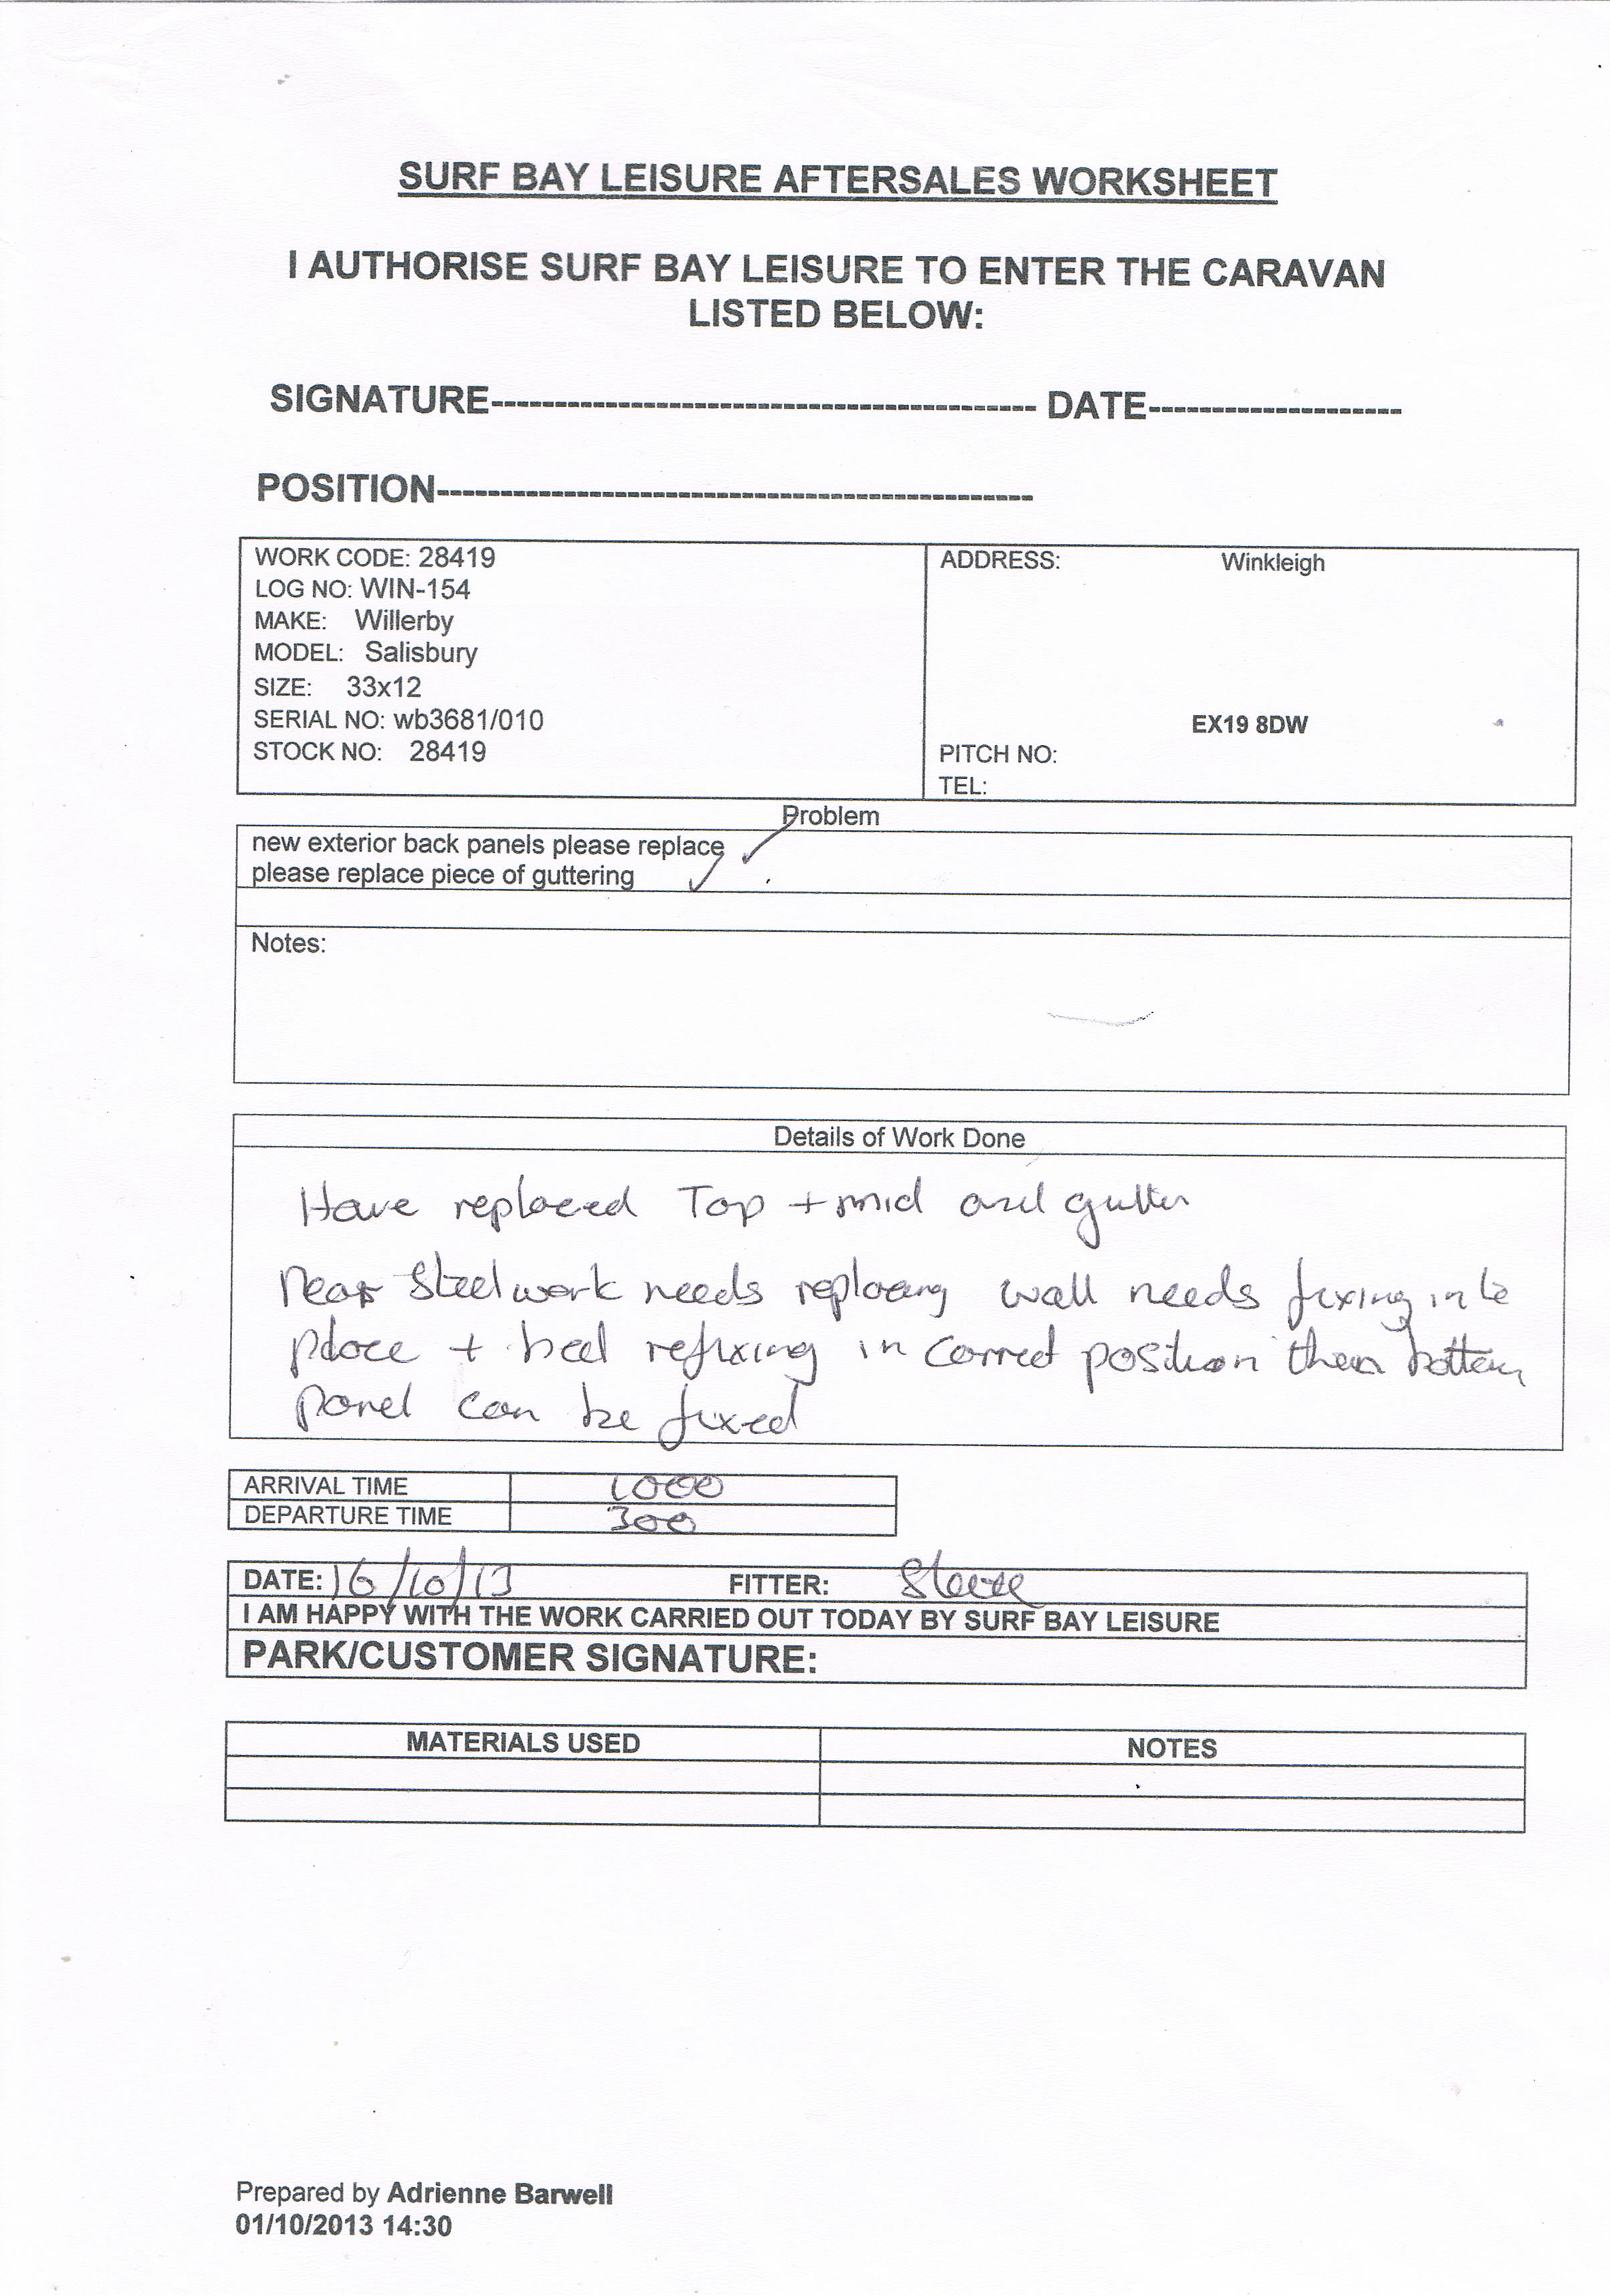 SURF BAY LEISURE AFTERSALES WORKSHEET
I AUTHORISE SURF BAY LEISURE TO ENTER THE CARAVAN
LISTED BELOW:
SIGNATURE------------------------------------------- DATE--------------------
POSITION-----------------------------------------------
WORK CODE: 28419
LOG NO: WIN-154
MAKE: Willerby
MODEL: Salisbury
SIZE: 33x12
SERIAL NO: wb3681/010
STOCK NO: 28419
ADDRESS: Winkleigh
EX19 8DW
PITCH NO:
TEL:
Problem
new exterior back panels please replace ✓
please replace piece of guttering ✓
Notes:
Details of Work Done
Have replaced Top + mid and gutter
Rear Steelwork needs replacing wall needs fixing into
place + bed refixing in correct position then bottom
panel can be fixed
ARRIVAL TIME 1000
DEPARTURE TIME 300
DATE: 16/10/13 FITTER: Steve
I AM HAPPY WITH THE WORK CARRIED OUT TODAY BY SURF BAY LEISURE
PARK/CUSTOMER SIGNATURE:
MATERIALS USED NOTES
Prepared by Adrienne Barwell
01/10/2013 14:30